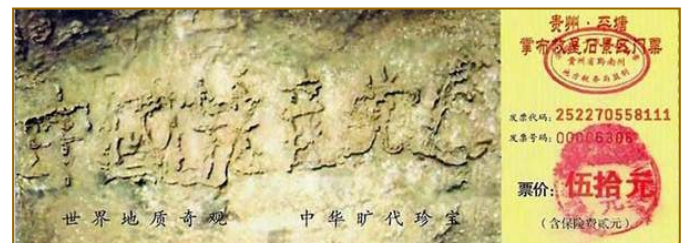 中國共产党亡
世界地质奇观 中华旷代珍宝
贵州·平塘
掌布救星石景区门票
贵州省黔南州
地方税务局监制
发票代码:252270558111
发票号码:00006306
票价:伍拾元
(含保险费贰元)